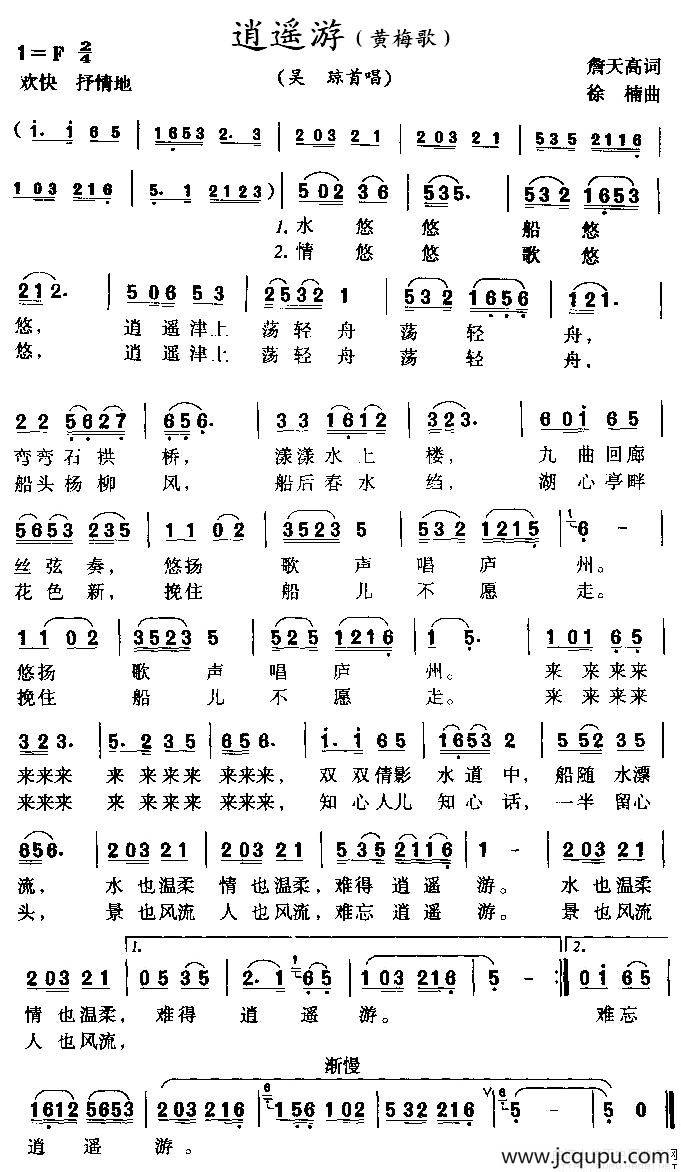 逍遥游（黄梅歌）
1=F 2/4
欢快 抒情地
（吴 琼首唱）
詹天高词
徐 楠曲
（i. i 6 5 | 1653 2.3 | 203 21 | 203 21 | 535 2116 |
103 216 | 5. 1 2123）| 502 36 | 535. | 532 1653 |
1.水 悠 悠 船 悠
2.情 悠 悠 歌 悠
212. | 506 53 | 2532 1 | 532 1656 | 121. |
悠， 逍遥津上 荡轻舟 荡 轻 舟，
悠， 逍遥津上 荡轻舟 荡 轻 舟，
2 2 5627 | 656. | 33 1612 | 323. | 60i 65 |
弯弯石拱 桥， 漾漾水上 楼， 九曲回廊
船头杨柳 风， 船后春水 绉， 湖心亭畔
5653 235 | 11 02 | 3523 5 | 532 1215 | 6 - |
丝弦奏， 悠扬 歌 声 唱庐 州。
花色新， 挽住 船 儿 不愿 走。
11 02 | 3523 5 | 525 1216 | 1 5. | 101 65 |
悠扬 歌 声 唱庐 州。 来 来来来
挽住 船 儿 不愿 走。 来 来来来
323. | 5. 2 35 | 656. | i. i 65 | 1653 2 | 52 35 |
来来来 来 来来来 来来来， 双 双倩影 水道中， 船随水漂
来来来 来 来来来 来来来， 知心人儿 知心话， 一半留心
656. | 203 21 | 203 21 | 535 2116 | 1 - | 203 21 |
流， 水也温柔 情也温柔，难得 逍遥 游。 水也温柔
头， 景也风流 人也风流，难忘 逍遥 游。 景也风流
1.
2.
203 21 | 05 35 | 2. 1 65 | 103 216 | 5 - :‖ 0i 65 |
情也温柔， 难得 逍 遥 游。 难忘
人也风流，
渐慢
1612 5653 | 203 216 | 156 102 | 532 216 | 5 - | 5 0 ‖
逍 遥 游。
www.jcqupu.com